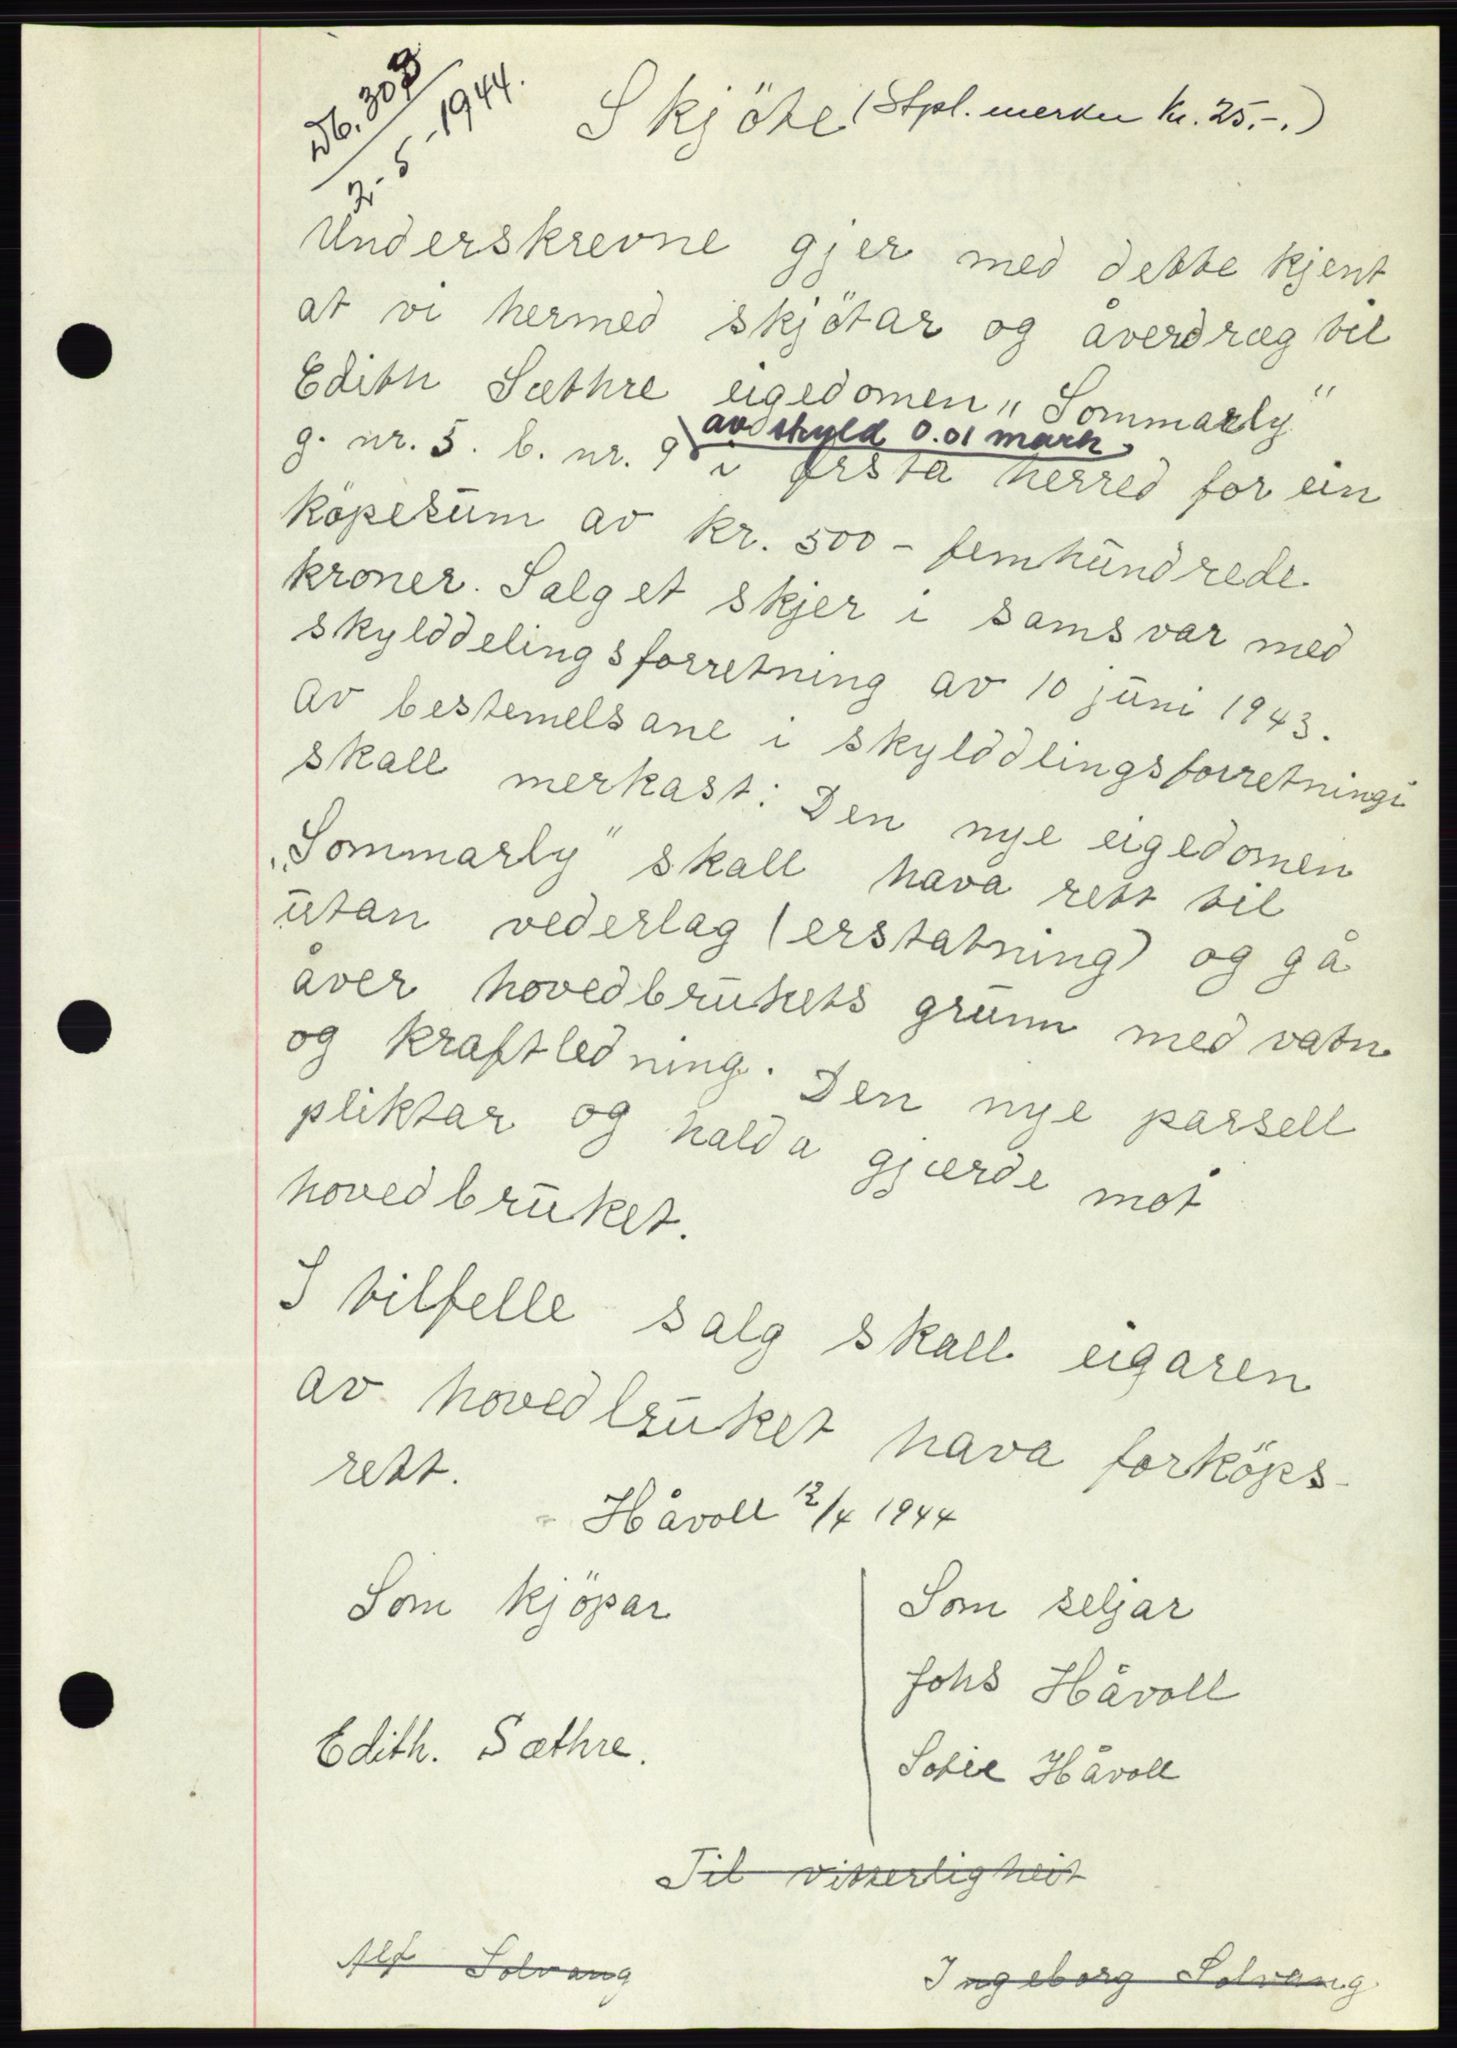 Db. 308
2.-5-1944.
Skjöte (Stpl. merker kr. 25.-.)
Underskrevne gjer med dette kjent
at vi hermed skjötar og åverdræg til
Edith Sæthre eigedomen „Sommarly"
av skyld 0.01 mark
g. nr. 5. b. nr. 9 i Ørsta herred for ein
köpesum av kr. 500 - femhundrede
kroner. Salget skjer i samsvar med
skylddelingsforretning av 10 juni 1943.
Av bestemelsane i skylddlingsforretningi
skall merkast: Den nye eigedomen
„Sommarly" skall hava rett til
utan vederlag (erstatning) og gå
åver hovedbrukets grunn med vatn
og kraftledning. Den nye parsell
pliktar og halda gjærde mot
hovedbruket.
I tilfelle salg skall eigaren
av hovedbruket hava forköps-
rett.
Håvoll 12/4 1944
Som kjöpar
Som seljar
Johs Håvoll
Edith. Sæthre.
Sofie Håvoll
Til vitterligheit
Alf Solvang
Ingeborg Solvang